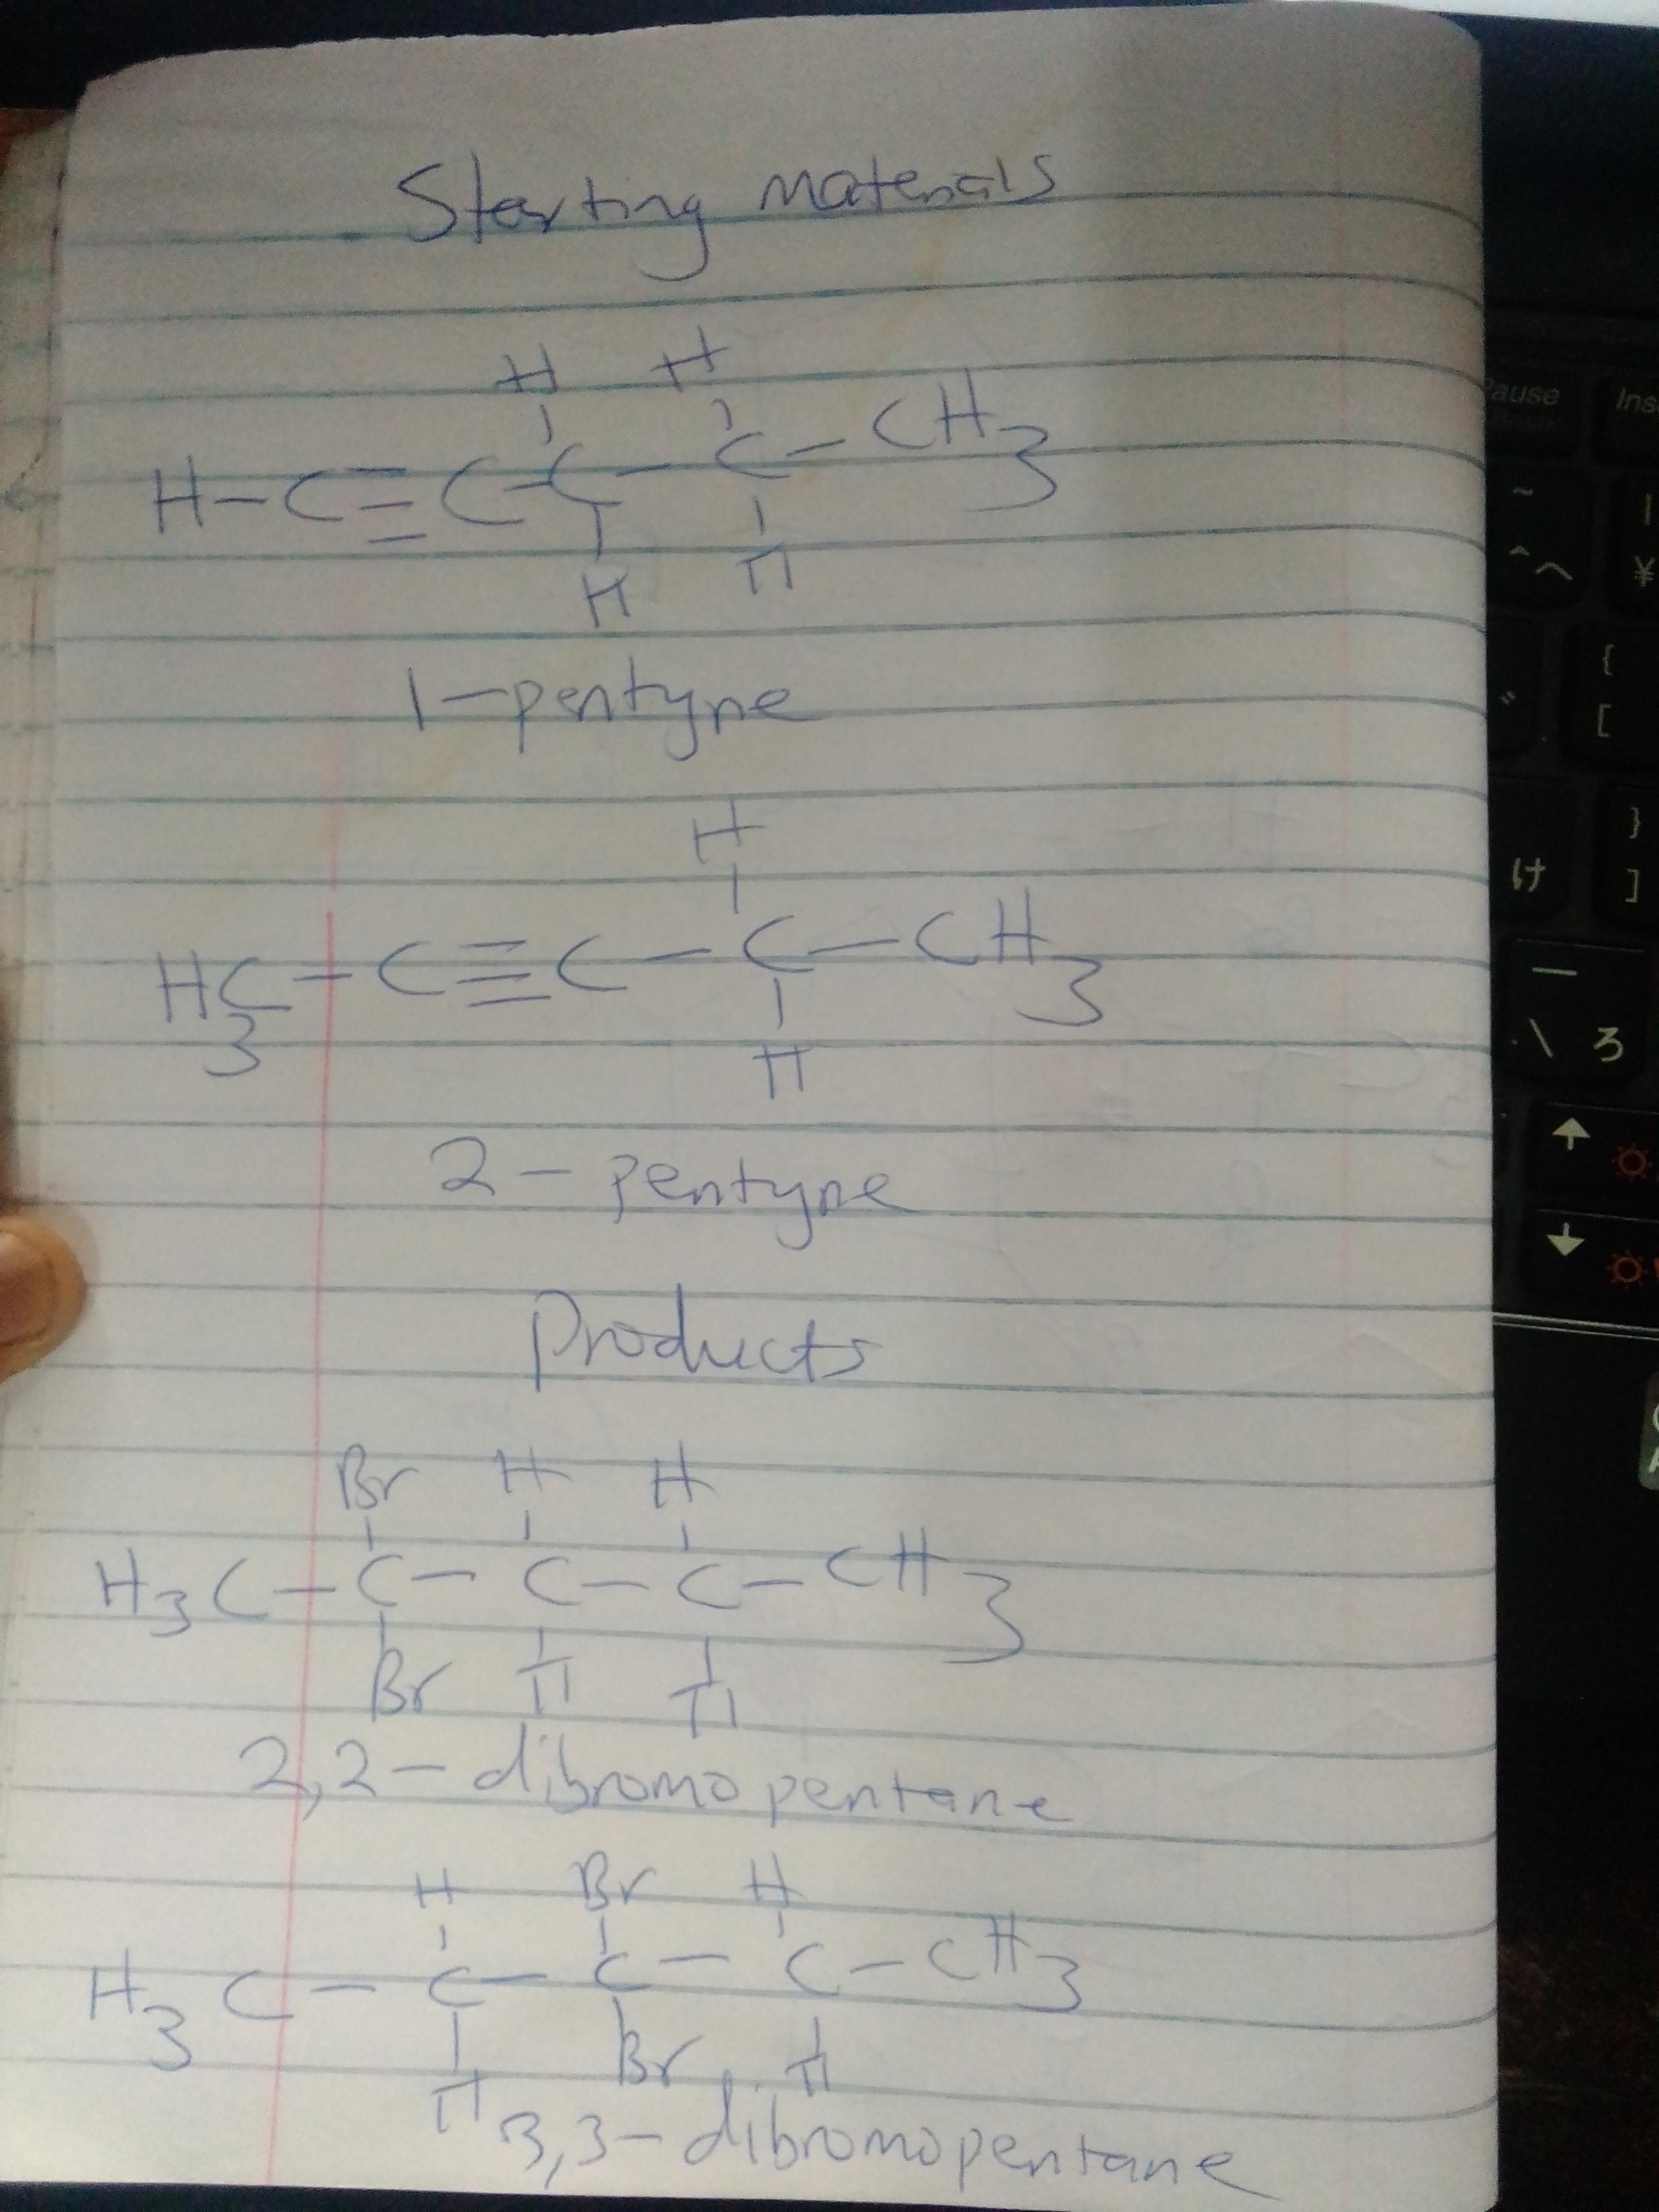 Starting materials
H H
H-C≡C-C-C-CH3
H H
1-pentyne
H
H3C-C≡C-C-CH3
H
2-pentyne
Products
Br H H
H3C-C-C-C-CH3
Br H H
2,2-dibromopentane
H Br H
H3C-C-C-C-CH3
H Br H
3,3-dibromopentane
Pause
Ins
~
^
へ
|
¥
{
[
け
}
]
\
ろ